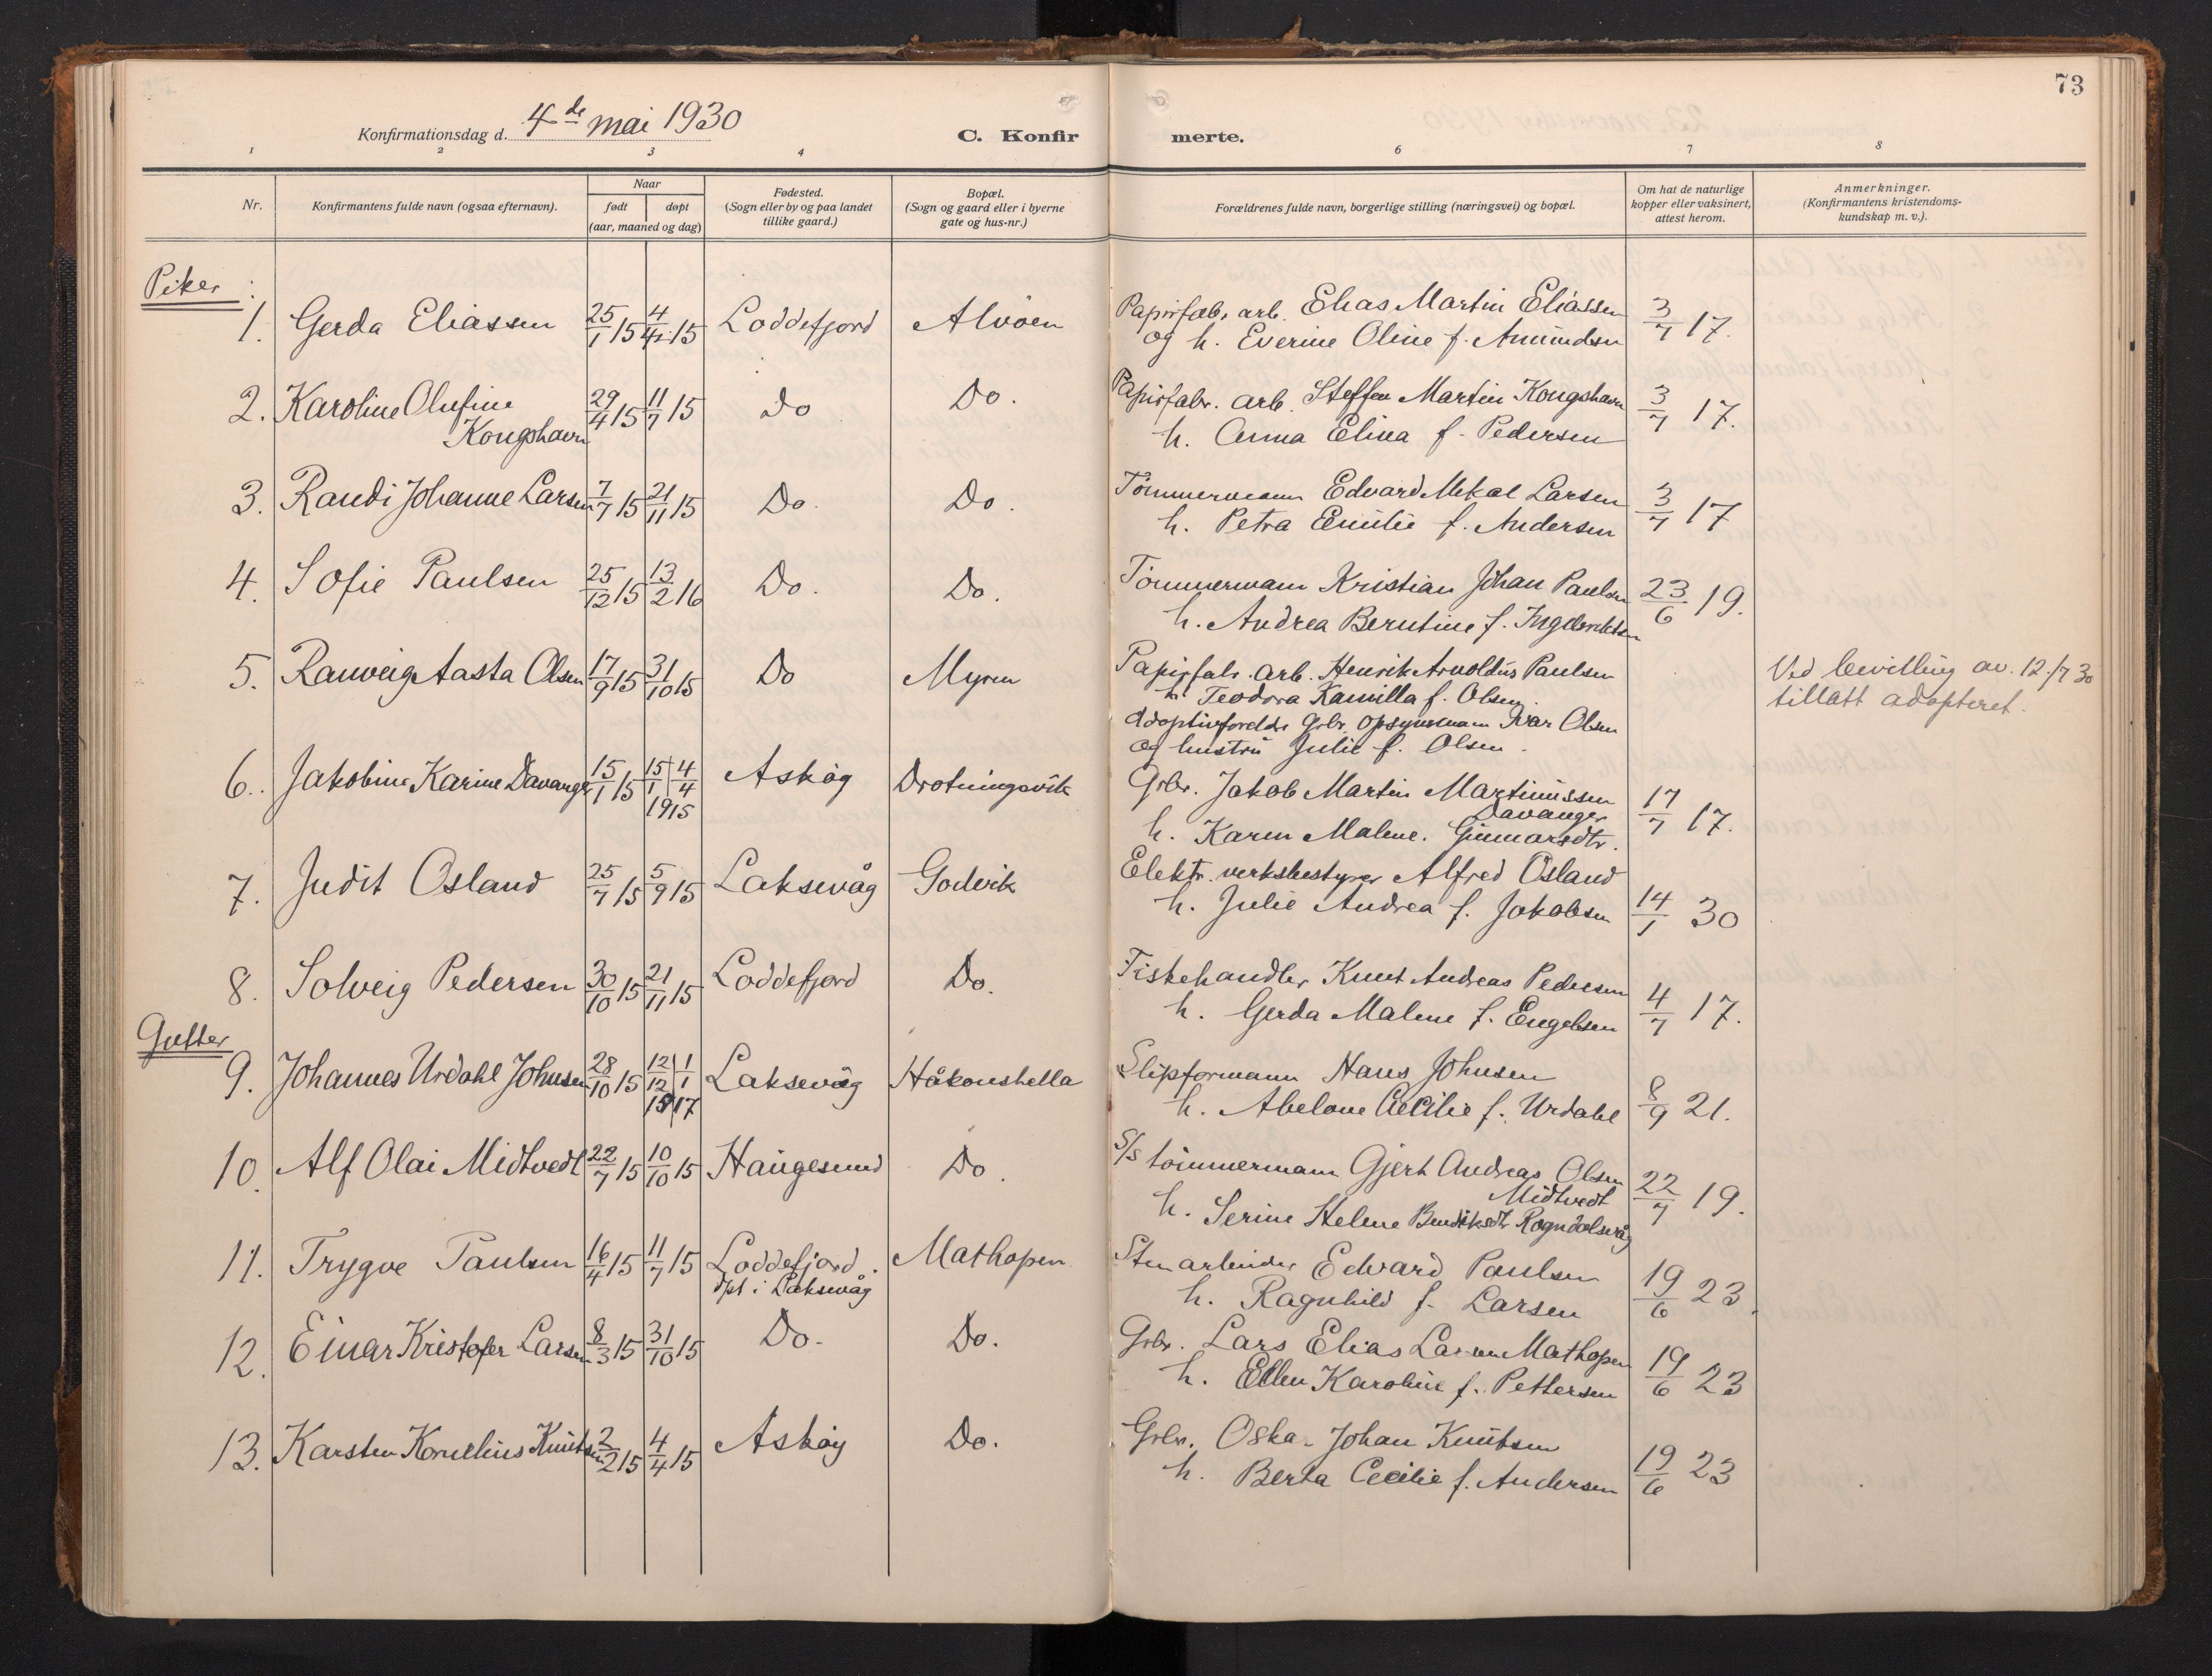 73
Konfirmationsdag d. 4de mai 1930
C. Konfirmerte.
1 2 3 4 6 7 8
Nr.
Konfirmantens fulde navn (ogsaa efternavn).
Naar
født døpt
(aar, maaned og dag)
Fødested.
(Sogn eller by og paa landet
tillike gaard.)
Bopæl.
(Sogn og gaard eller i byerne
gate og hus-nr.)
Forældrenes fulde navn, borgerlige stilling (næringsvei) og bopæl.
Om hat de naturlige
kopper eller vaksinert,
attest herom.
Anmerkninger.
(Konfirmantens kristendoms-
kundskap m. v.).
Piker:
1. Gerda Eliassen 25/1 15 4/4 15 Loddefjord Alvøen Papirfab. arb. Elias Martin Eliassen 3/7 17.
og h. Everine Oline f. Amundsen
2. Karoline Olufine 29/4 15 11/7 15 Do Do. Papirfabr. arb. Steffen Martin Kongshavn 3/7 17.
Kongshavn h. Anna Elina f. Pedersen
3. Randi Johanne Larsen 7/7 15 21/11 15 Do. Do. Tömmermann Edvard Mekal Larsen 3/7 17
h. Petra Emilie f. Andersen
4. Sofie Paulsen 25/12 15 13/2 16 Do. Do. Tömmermann Kristian Johan Paulsen 23/6 19.
h. Andrea Berntine f. Ingebriktsen
5. Ranveig Aasta Olsen 17/9 15 31/10 15 Do Myren Papirfabr. arb. Henrik Arnoldus Paulsen Ved bevilling av 12/7 30
h. Teodora Kamilla f. Olsen. tillatt adopteret.
Adoptivforeldre Grbr. opsynsmann Ivar Olsen
og hustru Julie f. Olsen.
6. Jakobine Karine Davanger 15/1 15 15/1 | 4/4 1915 Askøy Drotningsvik Grbr. Jakob Martin Martinussen 17/7 17.
Davanger
h. Karen Malene Gunnarsdtr.
7. Judit Osland 25/7 15 5/9 15 Laksevåg Godvik Elektr. verksbestyrer Alfred Osland
h. Julie Andrea f. Jakobsen 14/1 30
8. Solveig Pedersen 30/10 15 21/11 15 Loddefjord Do. Fiskehandler Knut Andreas Pedersen 4/7 17.
h. Gerda Malene f. Engelsen
Gutter
9. Johannes Urdahl Johnsen 28/10 15 12/12 15 | 1/1 17 Laksevåg Håkonshella Slipformann Hans Johnsen
h. Abelone Cecilie f. Urdahl 8/9 21.
10. Alf Olai Midtvedt 22/7 15 10/10 15 Haugesund Do. S/s tömmermann Gjert Andreas Olsen 22/7 19.
Midtvedt
h. Serine Helene Bendiksdtr Rognvolsvåg
11. Trygve Paulsen 16/4 15 11/7 15 Loddefjord. Mathopen Stenarbeider Edvard Paulsen 19/6 23.
døpt i Laksevåg h. Ragnhild f. Larsen
12. Einar Kristofer Larsen 8/3 15 31/10 15 Do. Do. Grbr. Lars Elias Larsen Mathopen 19/6 23
h. Ellen Karoline f. Pettersen
13. Karsten Kornelius Knutsen 2/2 15 4/4 15 Askøy Do. Grbr. Oskar Johan Knutsen 19/6 23
h. Berta Cecilie f. Andersen